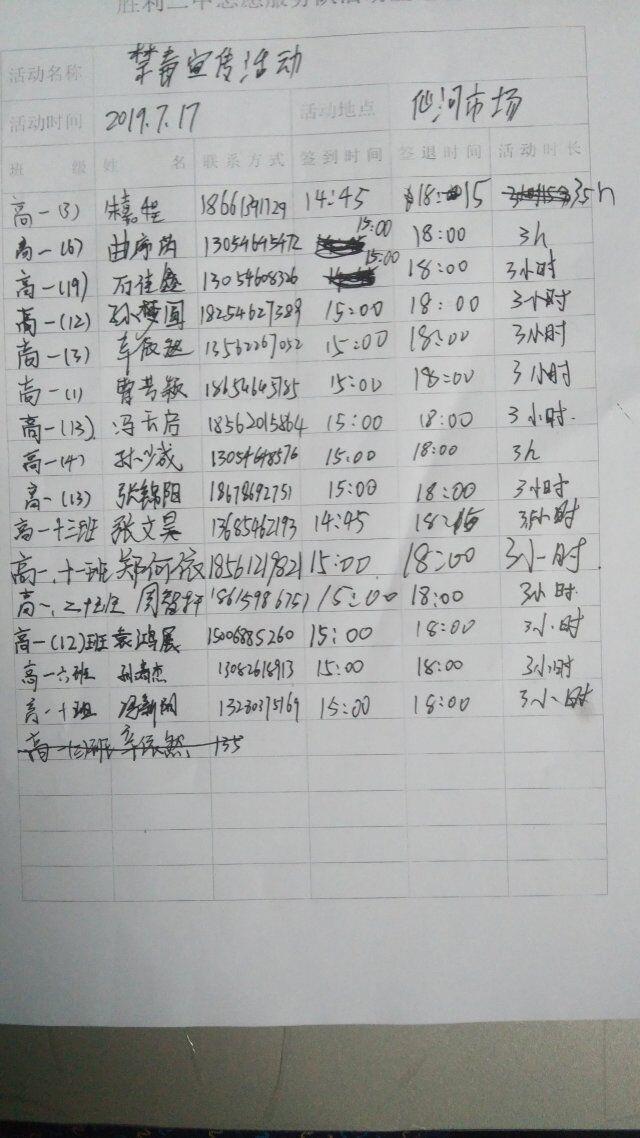 胜利二中志愿服务队活动
活动名称 禁毒宣传活动
活动时间 2019.7.17 活动地点 仙河市场
班 级 姓 名 联系方式 签到时间 签退时间 活动时长
高一(3) 朱嘉程 18661391729 14:45 18:15 3.5h
高一(6) 曲序芮 13054645472 15:00 18:00 3h
高一(19) 万佳鑫 13054608326 15:00 18:00 3小时
高一(12) 孙梦圆 18254627389 15:00 18:00 3小时
高一(3) 辛依然 13562267032 15:00 18:00 3小时
高一(1) 曹芸颖 18654645785 15:00 18:00 3小时
高一(13) 冯天启 18562015864 15:00 18:00 3小时.
高一(4) 孙少成 13054648576 15:00 18:00 3h
高一(13) 张锦阳 18678692751 15:00 18:00 3小时
高一十三班 张文昊 13685462193 14:45 18:15 3.5小时
高一.十一班 郑何依 18561219821 15:00 18:00 3小时.
高一.二十五班 周智轩 18615986751 15:00 18:00 3小时.
高一(12)班 袁鸿展 15006885260 15:00 18:00 3小时
高一六班 15:00 18:00 3小时
高一十班 13280375169 15:00 18:00 3小时
高一(3)班 辛依然 135